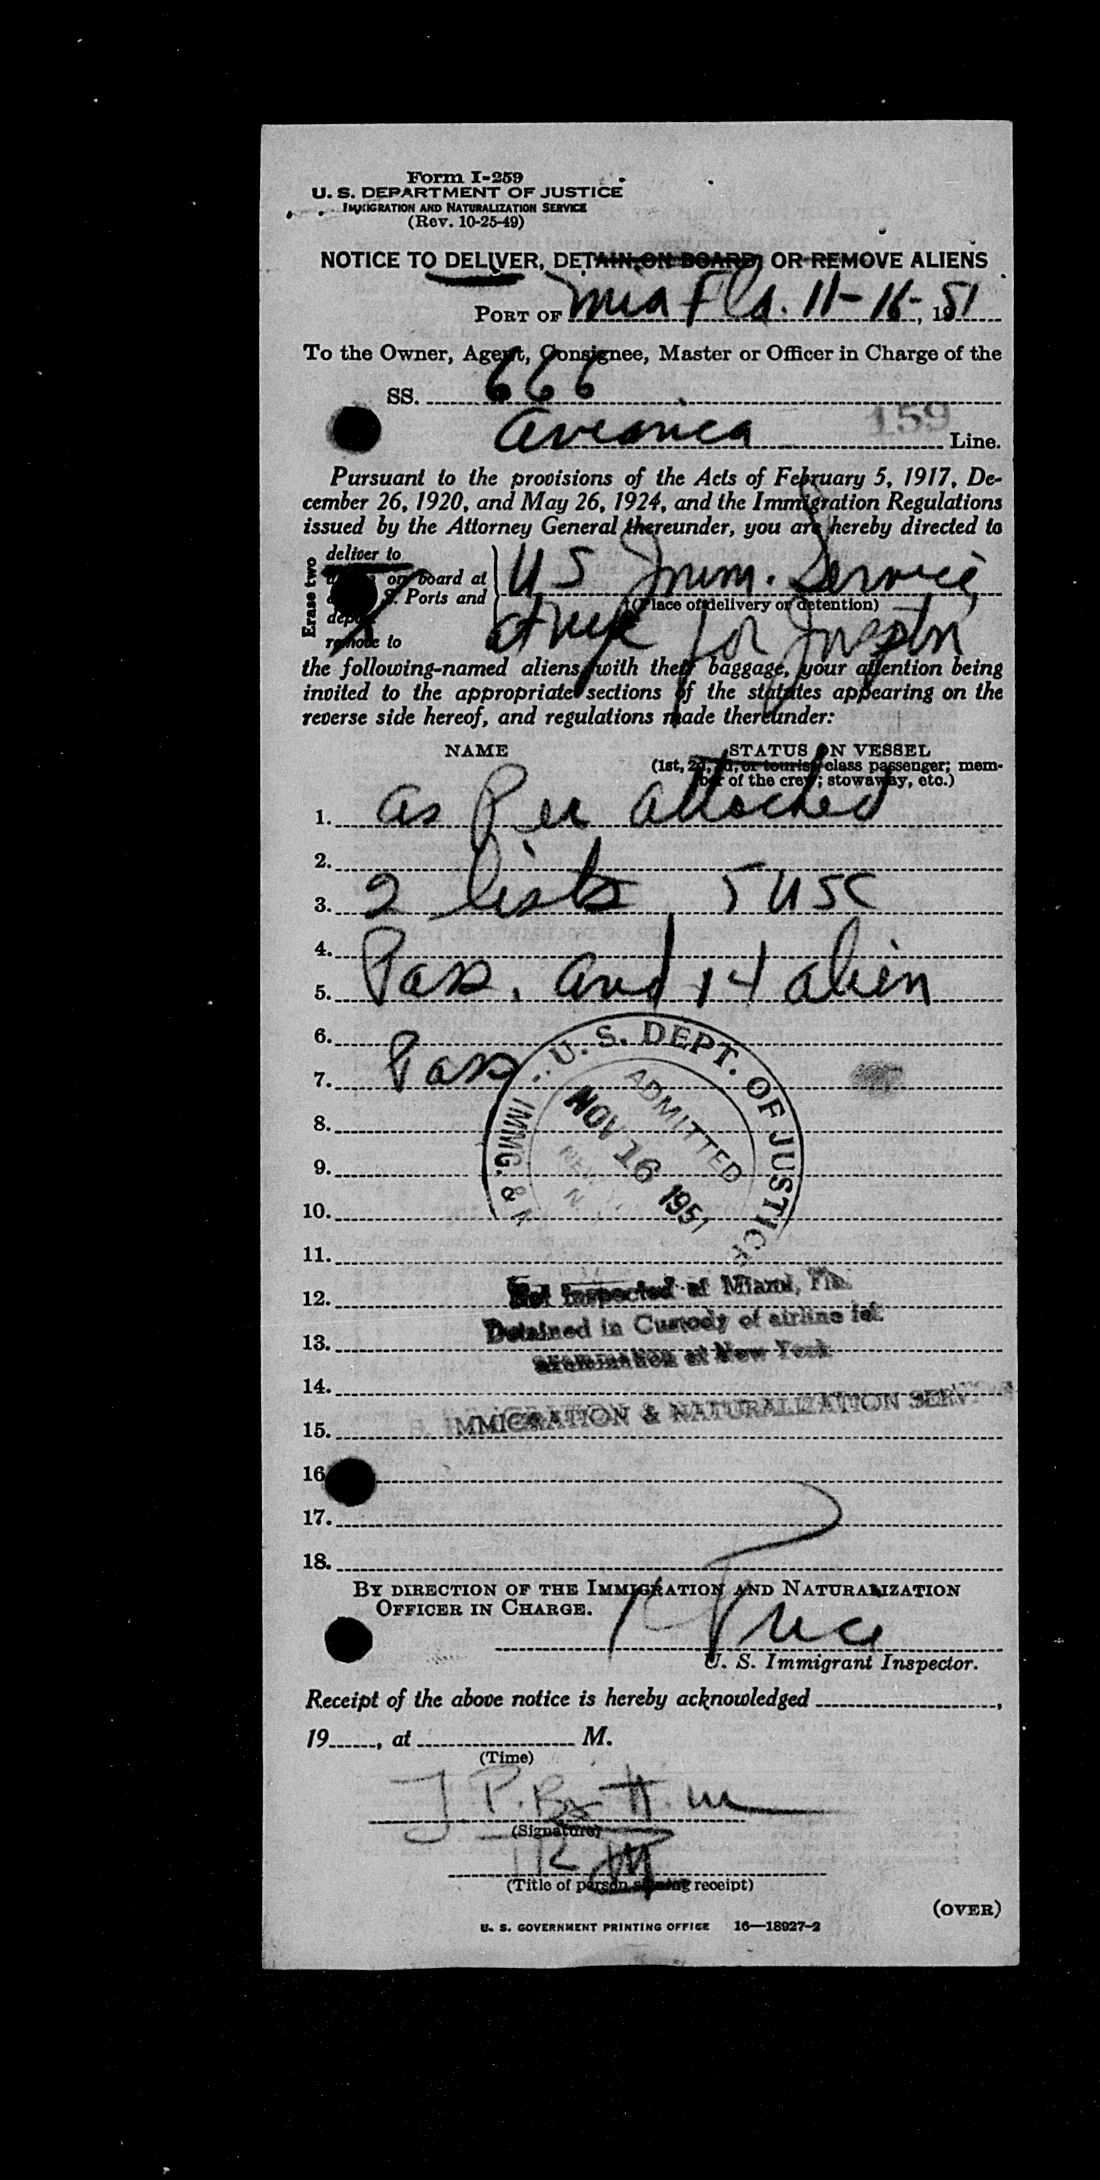 Form I-259
U. S. DEPARTMENT OF JUSTICE
IMMIGRATION AND NATURALIZATION SERVICE
(Rev. 10-25-49)
NOTICE TO DELIVER, DETAIN ON BOARD, OR REMOVE ALIENS
PORT OF Mia Fla. 11-16-, 1951
To the Owner, Agent, Consignee, Master or Officer in Charge of the
SS. 666
Avianca 159 Line.
Pursuant to the provisions of the Acts of February 5, 1917, De-
cember 26, 1920, and May 26, 1924, and the Immigration Regulations
issued by the Attorney General thereunder, you are hereby directed to
Erase two
deliver to
on board at
Ports and
remove to
US Imm. Service
(Place of delivery or detention)
for
the following-named aliens, with their baggage, your attention being
invited to the appropriate sections of the statutes appearing on the
reverse side hereof, and regulations made thereunder:
NAME STATUS ON VESSEL
(1st, 2d, 3d, or tourist class passenger; mem-
ber of the crew; stowaway, etc.)
1. as Per attached
2.
3. 2 lists 5 USC
4.
5. Pass. and 14 alien
6.
7. Pass
8.
9.
10.
11.
12.
13.
14.
15.
16
17.
18.
U. S. DEPT. OF JUSTICE
IMMG. & N
ADMITTED
NOV 16 1951
Not Inspected at Miami, Fla.
Detained in Custody of airline for
examination at New York
S. IMMIGRATION & NATURALIZATION SERVICE
BY DIRECTION OF THE IMMIGRATION AND NATURALIZATION
OFFICER IN CHARGE.
Price
U. S. Immigrant Inspector.
Receipt of the above notice is hereby acknowledged
19, at M.
(Time)
J. P.
(Signature)
(Title of person signing receipt)
(OVER)
U. S. GOVERNMENT PRINTING OFFICE 16—18927-2